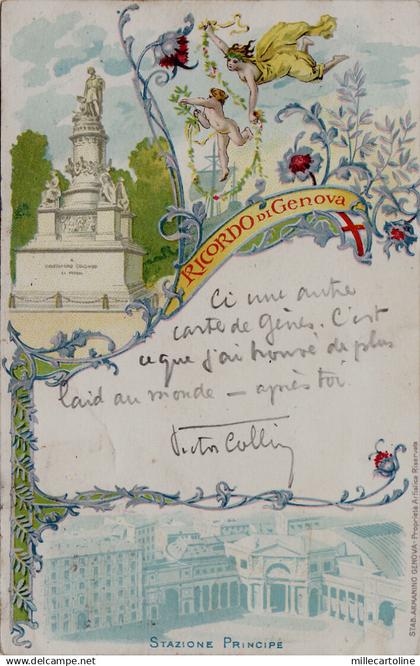 A
CRISTOFORO COLOMBO
LA PATRIA
RICORDO DI GENOVA
Ci une autre
carte de Gênes. C'est
ce que j'ai trouvé de plus
laid au monde — après toi.
Victor Collin
STAZIONE PRINCIPE
STAB. ARMANINO GENOVA - Proprietà Artistica Riservata
www.delcampe.net
millecartoline